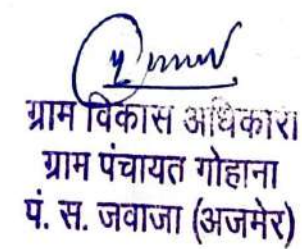 ग्राम विकास अधिकारी
ग्राम पंचायत गोहाना
पं. स. जवाजा (अजमेर)